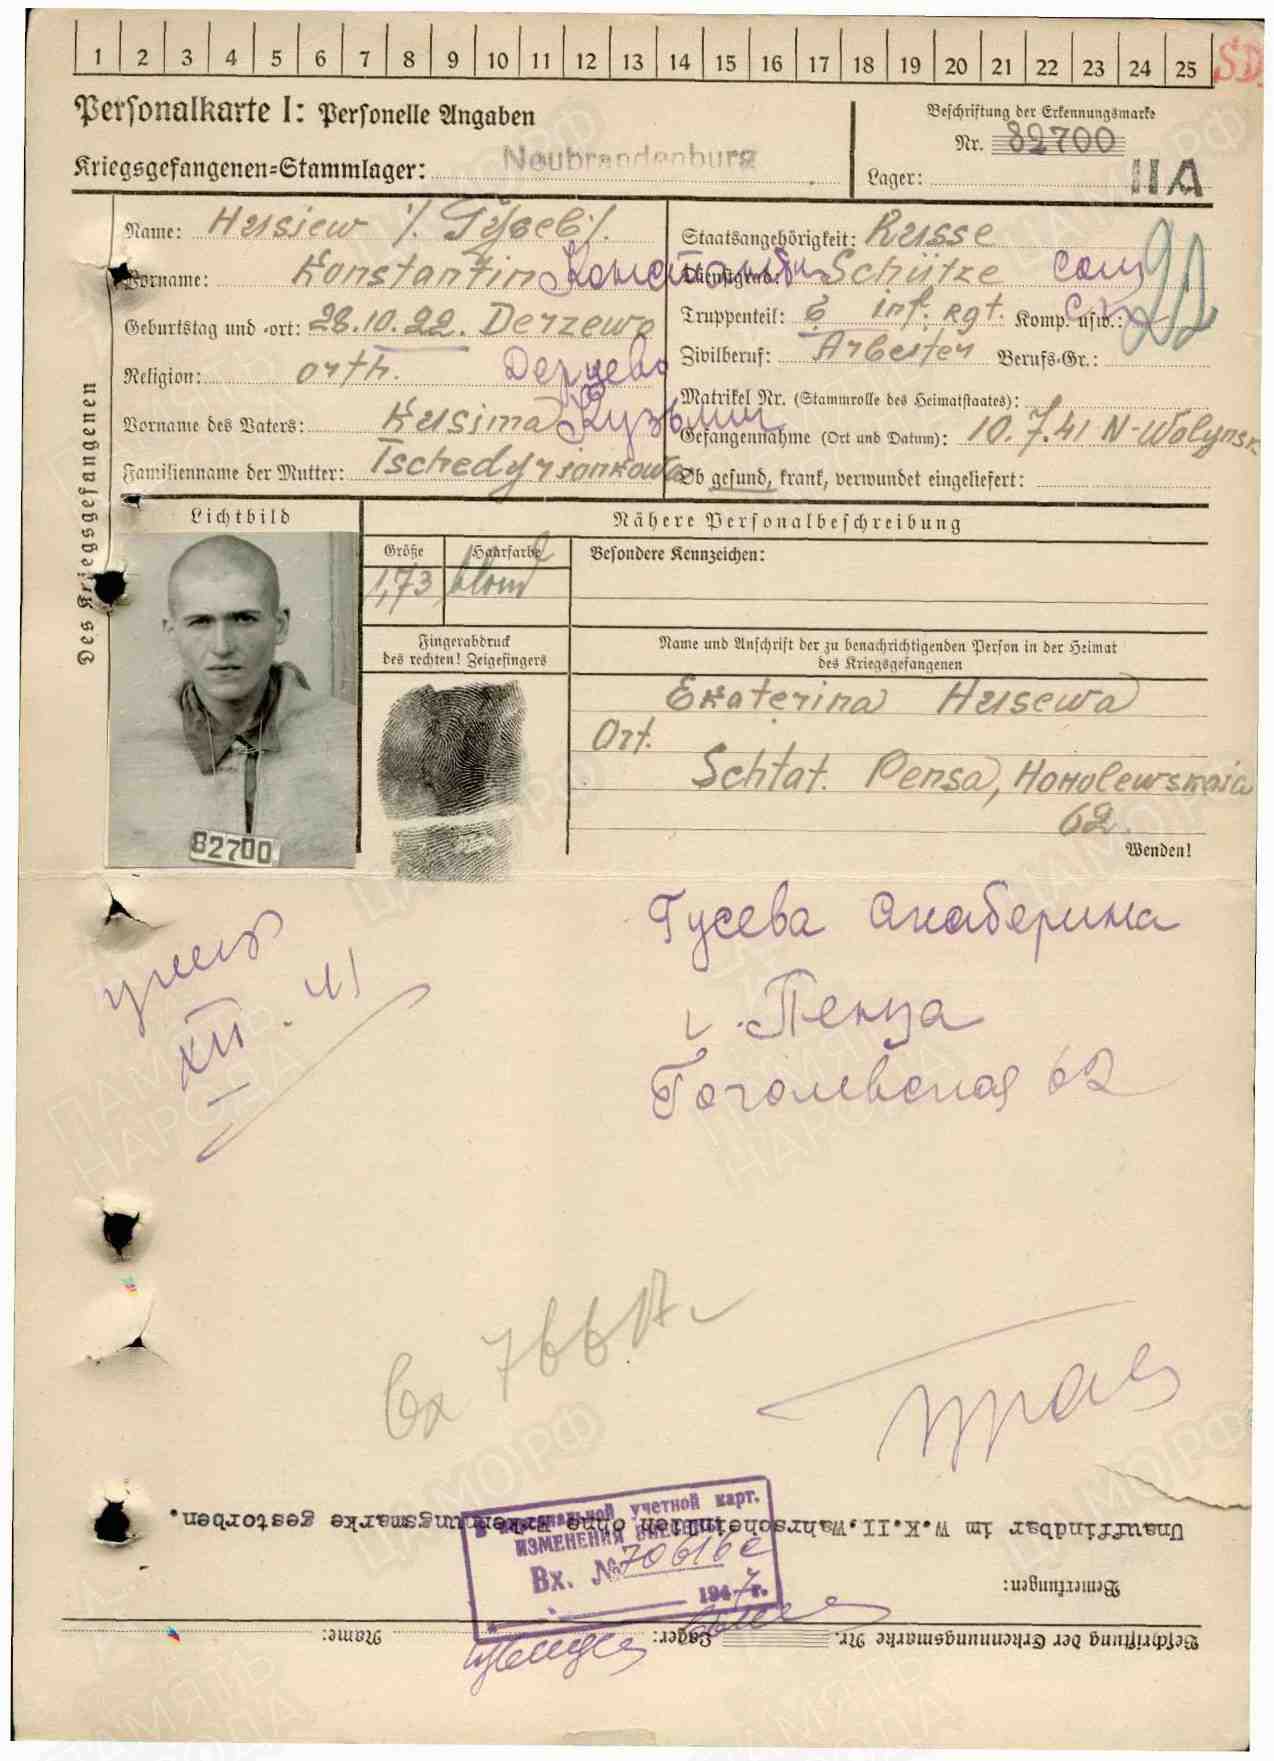 1 2 3 4 5 6 7 8 9 10 11 12 13 14 15 16 17 18 19 20 21 22 23 24 25 SD
Personalkarte I: Personelle Angaben
Beschriftung der Erkennungsmarke
Nr. 82700
Kriegsgefangenen-Stammlager: Neubrandenburg
Lager: II A
Des Kriegsgefangenen
Name: Husiew /. Гусев /.
Vorname: Konstantin Константин
Geburtstag und -ort: 28.10.22. Derzewo
Religion: orth. Дерцево
Vorname des Vaters: Kusima Кузьмич
Familienname der Mutter:
Staatsangehörigkeit: Russe
Dienstgrad: Schütze солд
Truppenteil: 6 inf. rgt. Komp. usw.:
Zivilberuf: Arbeiter Berufs-Gr.:
Matrikel Nr. (Stammrolle des Heimatstaates):
Gefangennahme (Ort und Datum): 10.7.41 N-Wolynsk
Ob gesund, krank, verwundet eingeliefert:
Lichtbild
Nähere Personalbeschreibung
Größe
1,73
Haarfarbe
blond
Besondere Kennzeichen:
Fingerabdruck
des rechten! Zeigefingers
Name und Anschrift der zu benachrichtigenden Person in der Heimat
des Kriegsgefangenen
Ekaterina Husewa
Ort.
Schtat. Pensa, Honolewskaia
62.
Wenden!
82700
Гусева Екатерина
г. Пенза
Гоголевская 62
умер
XII. 41
Вх 766
Unauffindbar im W.K.II, wahrscheinlich ohne Erkennungsmarke gestorben.
Bemerkungen:
В персональной учетной карт.
ИЗМЕНЕНИЯ ВНЕСЕНЫ
Вх. № 70616с
1947 г.
Beschriftung der Erkennungsmarke Nr. Lager: Name:
ПАМЯТЬ
НАРОДА
ЦАМО.РФ